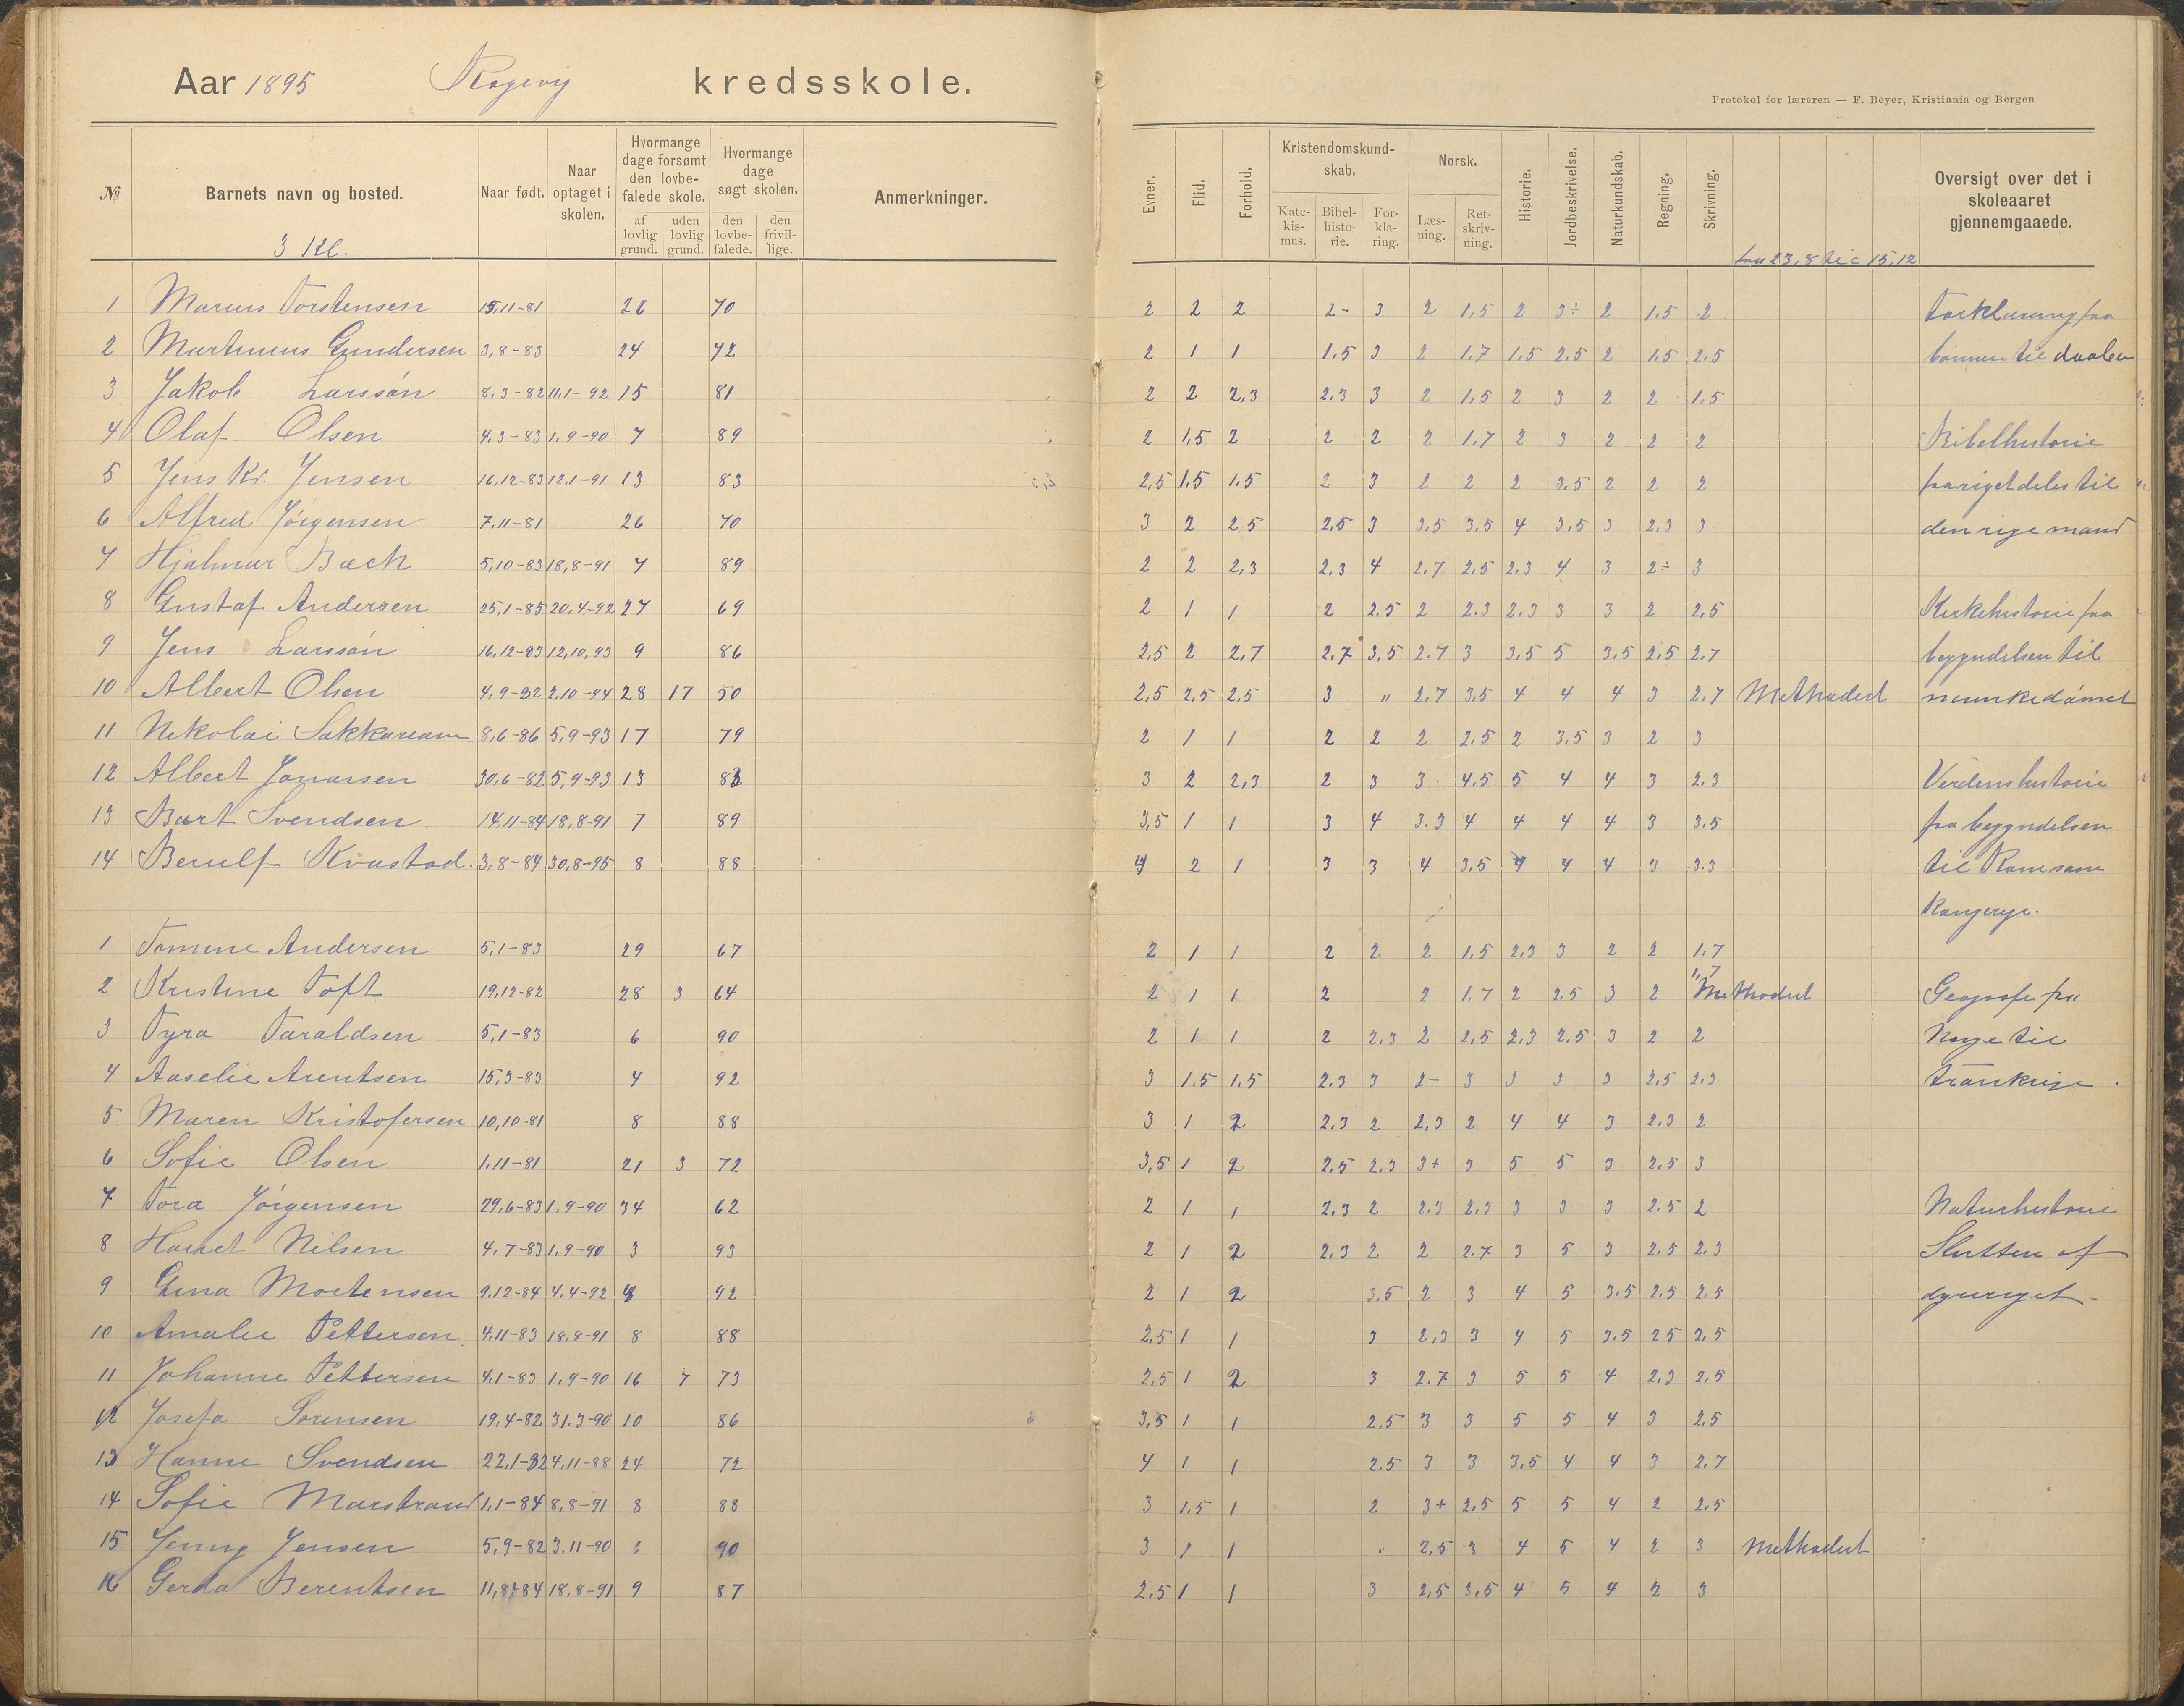 Aar 1895 kredsskole.
Protokol for læreren — F. Beyer, Kristiania og Bergen
№ Barnets navn og bosted. Naar født. Naar optaget i skolen. Hvormange dage forsømt den lovbefalede skole. af lovlig grund. uden lovlig grund. Hvormange dage søgt skolen. den lovbefalede. den frivillige. Anmerkninger. Evner. Flid. Forhold. Kristendomskundskab. Katekismus. Bibelhistorie. Forklaring. Norsk. Læsning. Retskrivning. Historie. Jordbeskrivelse. Naturkundskab. Regning. Skrivning. Oversigt over det i skoleaaret gjennemgaaede.
3 Kl. fra 23,8 til 15,12
1 Marius Torstensen 15,11-81 26 70 2 2 2 2- 3 2 1,5 2 3÷ 2 1,5 2 Forklaring fra
2 Martinius Gundersen 3,8-83 24 72 2 1 1 1,5 3 2 1,7 1,5 2,5 2 1,5 2,5 bønnen til daaben
3 Jakob Larssøn 8,3-82 11,1-92 15 81 2 2 2,3 2,3 3 2 1,5 2 3 2 2 1,5
4 Olaf Olsen 4,3-83 1,9-90 7 89 2 1,5 2 2 2 2 1,7 2 3 2 2 2 Bibelhistorie
5 Jens Kr. Jensen 16,12-83 12,1-91 13 83 2,5 1,5 1,5 2 3 2 2 2 3,5 2 2 2 fra riget deles til
6 Alfred Jörgensen 7,11-81 26 70 3 2 2,5 2,5 3 3,5 3,5 4 3,5 3 2,3 3 den rige mand
7 Hjalmar Bæch 5,10-83 18,8-91 7 89 2 2 2,3 2,3 4 2,7 2,5 2,3 4 3 2÷ 3
8 Gustaf Andersen 25,1-85 20,4-92 27 69 2 1 1 2 2,5 2 2,3 2,3 3 3 2 2,5 Kirkehistorie fra
9 Jens Larssøn 16,12-83 12,10,93 9 86 2,5 2 2,7 2,7 3,5 2,7 3 3,5 5 3,5 2,5 2,7 begyndelsen til
10 Albert Olsen 4,9-82 2,10-94 28 17 50 2,5 2,5 2,5 3 " 2,7 3,5 4 4 4 3 2,7 Methodist munkedømet
11 Nikolai 8,6-86 5,9-93 17 79 2 1 1 2 2 2 2,5 2 3,5 3 2 3
12 Albert Jonassen 30,6-82 5,9-93 13 83 3 2 2,3 2 3 3 4,5 5 4 4 3 2,3 Verdenshistorie
13 Bart Svendsen 14,11-84 18,8-91 7 89 3,5 1 1 3 4 3,3 4 4 4 4 3 3,5 fra begyndelsen
14 Berulf Kvastad 3,8-84 30,8-95 8 88 4 2 1 3 3 4 3,5 4 4 4 3 3,3 til Rom som
Kongerige.
1 Tomine Andersen 5,1-83 29 67 2 1 1 2 2 2 1,5 2,3 3 2 2 1,7
2 Kristine Toft 19,12-82 28 3 64 2 1 1 2 2 1,7 2 2,5 3 2 1,7 Methodist Geografi fra
3 Tyra Taraldsen 5,1-83 6 90 2 1 1 2 2,3 2 2,5 2,3 2,5 3 2 2 Norge til
4 Aaselie Arentsen 15,3-83 4 92 3 1,5 1,5 2,3 3 2- 3 3 3 3 2,5 2,3 Frankrige.
5 Maren Kristofersen 10,10-81 8 88 3 1 2 2,3 2 2,3 2 4 4 3 2,3 2
6 Sofie Olsen 1,11-81 21 3 72 3,5 1 2 2,5 2,3 3+ 3 5 5 3 2,5 3
7 Tora Jörgensen 29,6-83 1,9-90 34 62 2 1 1 2,3 2 2,3 2,3 3 3 3 2,5 2 Naturhistorie
8 Nilsen 4,7-83 1,9-90 3 93 2 1 2 2,3 2 2 2,7 3 5 3 2,5 2,3 Slutten af
9 Gina Mortensen 9,12-84 4,4-92 92 2 1 2 3,5 2 3 4 5 3,5 2,5 2,5 dyreriget
10 Amalie Pettersen 4,11-83 18,8-91 8 88 2,5 1 1 3 2,3 3 4 5 3,5 25 2,5
11 Johanne Pettersen 4,1-83 1,9-90 16 7 73 2,5 1 2 3 2,7 3 5 5 4 2,3 2,5
12 Josefa Sørensen 19,4-82 31,3-90 10 86 3,5 1 1 2,5 3 3 5 5 4 3 2,5
13 Hanne Svendsen 22,1-82 4,11-88 24 72 4 1 1 2,5 3 3 3,5 4 4 3 2,7
14 Sofie Marstrand 1,1-84 8,8-91 8 88 3 1,5 1 2 3+ 2,5 5 5 4 2 2,5
15 Jenny Jensen 5,9-82 3,11-90 90 3 1 1 2,5 3 4 5 4 2 3 Methodist
16 Gerda Berentsen 11,8-84 18,8-91 9 87 2,5 1 1 3 2,5 3,5 4 5 4 2 3